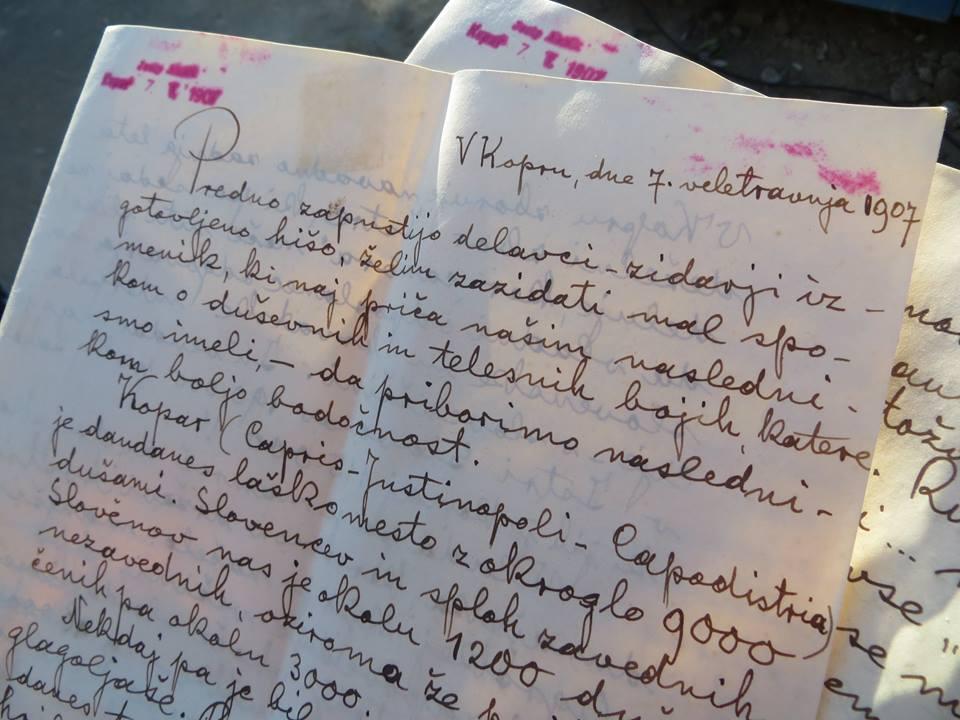 Kopar 7. V. 1907
Kopar 7. V. 1907
V Kopru, dne 7. veletravnja 1907
Predno zapustijo delavci-zidarji iz-
gotovljeno hišo, želim zazidati mal spo-
menik, ki naj priča našim nasledni-
kom o duševnih in telesnih bojih, katere
smo imeli, – da priborimo nasledni-
kom boljo bodočnost.
Kopar (Capris-Justinopoli-Capodistria)
je dandanes laško mesto z okroglo 9000
dušami. Slovencev in sploh zavednih
Slověnov nas je okolu 1200 du
nezavednih, oziroma že
čenih pa okolu 3000.
Nekdaj pa je bil
glagoljaše.
danes
vse
se